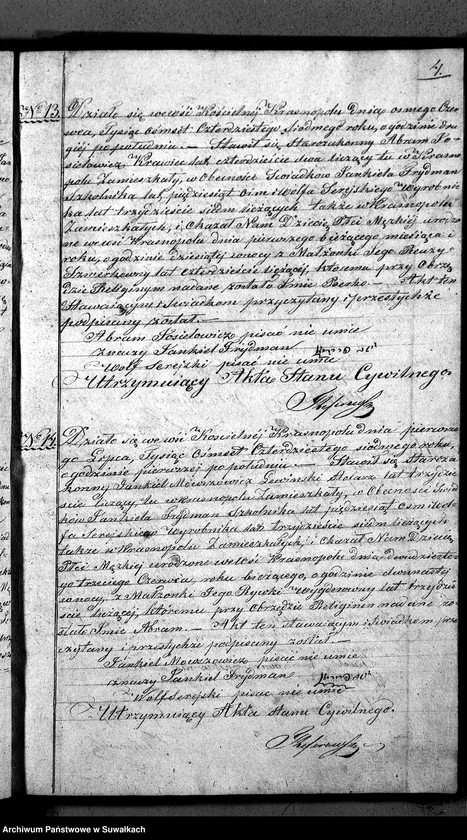 4.
No 13.
Działo się we wsi Kościelnej Krasnopolu dnia osmego Czer
wca, Tysiąc ośmset Czterdziestego siódmego roku, o godzinie dru
giej po południu — Stawił się Starozakonny Abram Jo
sielowicz Krawiec lat czterdzieście dwa liczący tu w Krasno
polu Zamieszkały, w Obecności Świadków Jankiela Frydman
Szkolnika lat pięćdziesiąt ośm i Wolfa Serejskiego Wyrobni
ka lat trzydzieście siedm liczących także w Krasnopolu
Zamieszkałych, i Okazał Nam Dziecię Płci Męzkiej urodzo
ne we wsi Krasnopolu dnia pierwszego bieżącego miesiąca i
roku, o godzinie dziesiątej wnocy z Małżonki Jego
lat czterdzieście liczącej, któremu przy Obrzę
dzie Religijnym nadane zostało Imie Berko — Akt ten
Stawaiącymu i Świadkom przyczytany i przestychże
podpisany został —
Abram Josielowicz pisać nie umie
znaczy Jankiel Frydman
Wolf Serejski pisać nie umie
Utrzymuiący Akta Stanu Cywilnego.
No 14.
Działo się we wsi Kościelnej Krasnopolu dnia pierwsze
go Lipca, Tysiąc Ośmset Czterdziestego siódmego roku,
o godzinie pierwszej po południu — Stawił się Staroza
konny Jankiel Lewinski Stolarz lat trzydzie
ście liczący, tu w Krasnopolu Zamieszkały, w Obecności Świad
ków Jankiela Frydman Szkolnika lat pięćdziesiąt Ośm i Wol
fa Serejskiego Wyrobnika lat trzydzieście siedm liczących
także w Krasnopolu Zamieszkałych, i Okazał Nam Dziecię
Płci Męzkiej urodzone we wsi Krasnopolu dnia dwudzieste
go trzeciego Czerwca, roku bieżącego, o godzinie dwunastej
wnocy, z Małżonki Jego Rywki lat trzydzie
ście liczącej, któremu przy Obrzędzie Religijnem nadane zo
stało Imie Abram. — Akt ten stawaiącym i Świadkom prze
czytany i przestychże podpisany został —
Jankiel pisać nie umie
znaczy Jankiel Frydman
Wolf Serejski pisać nie umie
Utrzymuiący Akta stanu Cywilnego.
Archiwum Państwowe w Suwałkach